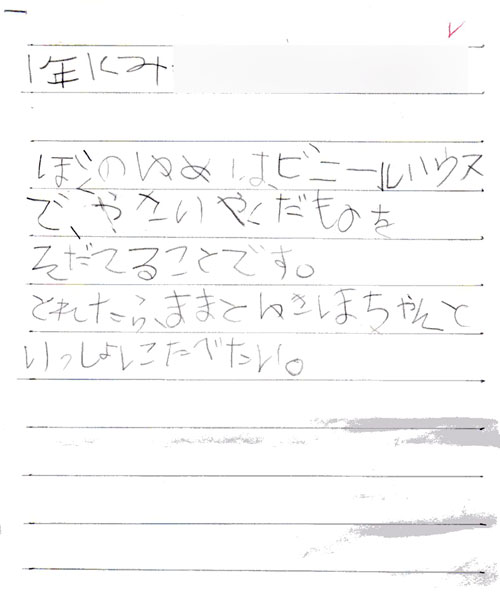 1年1くみ
ぼくのゆめは、ビニールハウス
で、やさいやくだものを
そだてることです。
とれたら、ままとゆきほちゃんと
いっしょにたべたい。